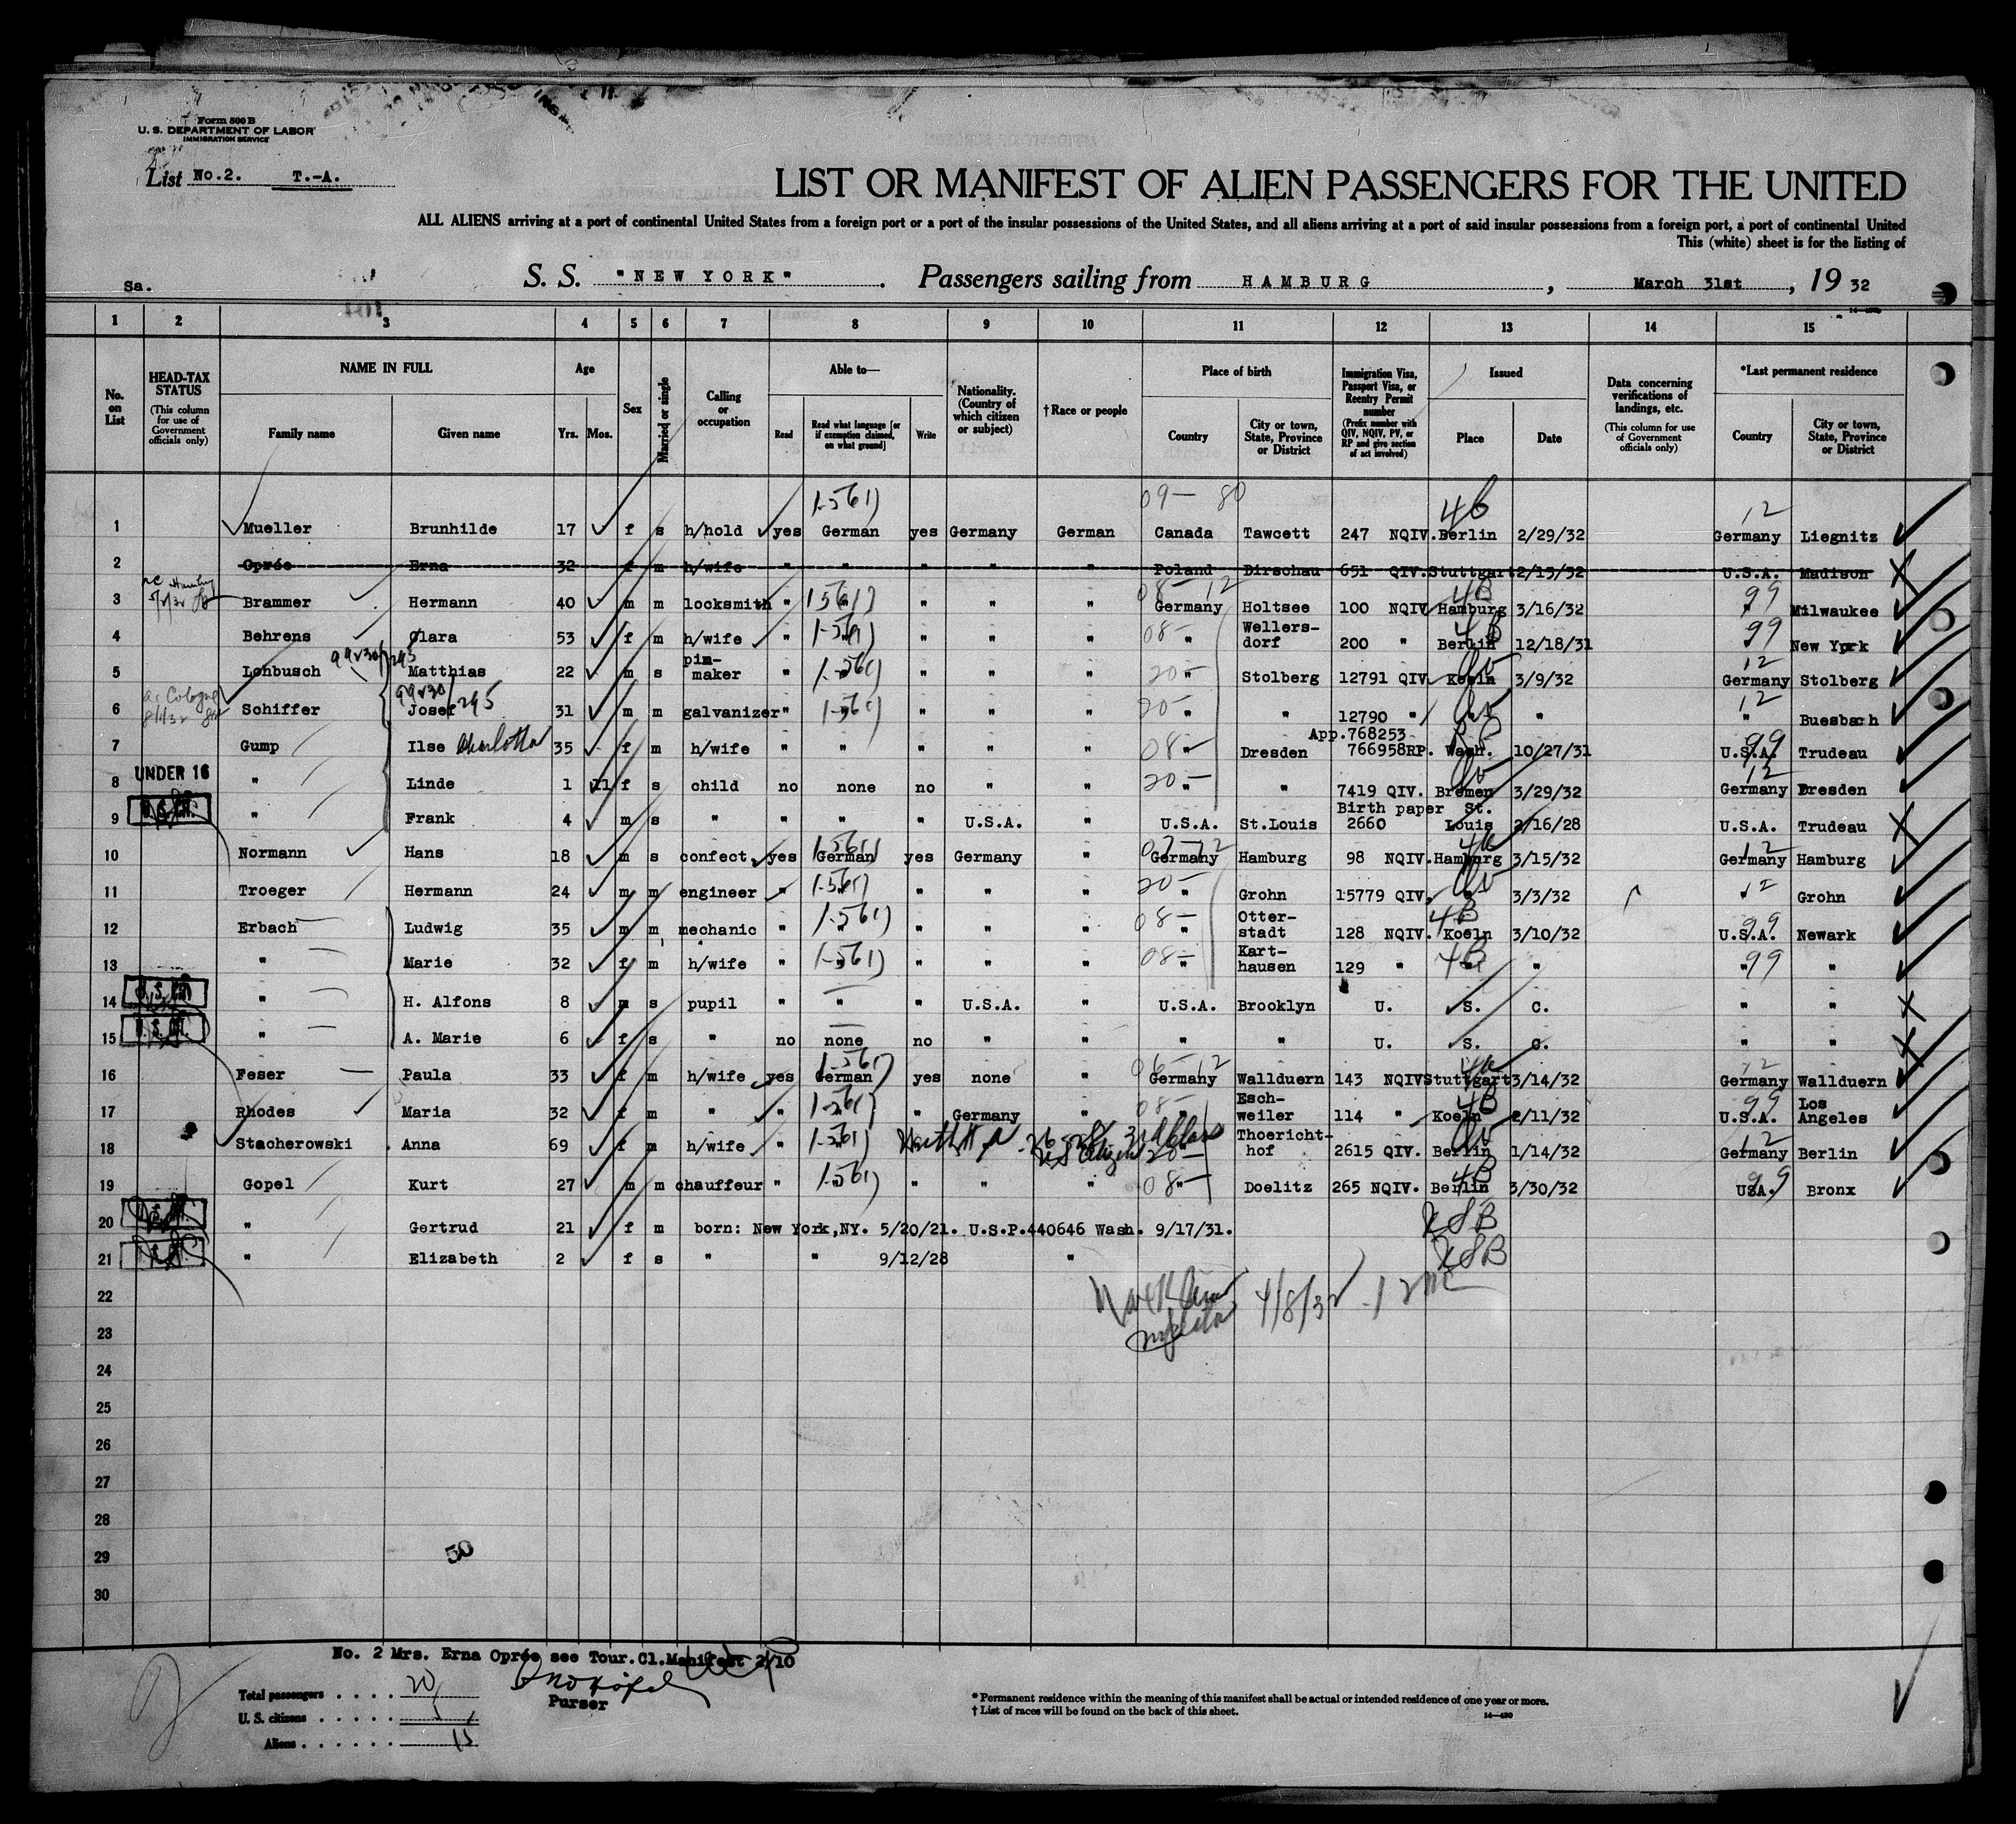 Form 500 B
U. S. DEPARTMENT OF LABOR
IMMIGRATION SERVICE
List No.2. T.-A.
LIST OR MANIFEST OF ALIEN PASSENGERS FOR THE UNITED
ALL ALIENS arriving at a port of continental United States from a foreign port or a port of the insular possessions of the United States, and all aliens arriving at a port of said insular possessions from a foreign port, a port of continental United
This (white) sheet is for the listing of
Sa. S. S. "NEW YORK". Passengers sailing from HAMBURG, March 31st, 19 32
1 2 3 4 5 6 7 8 9 10 11 12 13 14 15
No. on List
HEAD-TAX STATUS (This column for use of Government officials only)
NAME IN FULL Family name Given name
Age Yrs. Mos.
Sex
Married or single
Calling or occupation
Able to— Read Read what language [or if exemption claimed, on what ground] Write
Nationality. (Country of which citizen or subject)
†Race or people
Place of birth Country City or town, State, Province or District
Immigration Visa, Passport Visa, or Reentry Permit number (Prefix number with QIV, NQIV, PV, or RP and give section of act involved)
Issued Place Date
Data concerning verifications of landings, etc. (This column for use of Government officials only)
*Last permanent residence Country City or town, State, Province or District
1 Mueller Brunhilde 17 f s h/hold yes German yes Germany German Canada Tawcett 247 NQIV. Berlin 2/29/32 Germany Liegnitz
2 Oprée Erna 32 f m h/wife " " " " " Poland Dirschau 651 QIV. Stuttgart 2/15/32 U.S.A. Madison
3 Brammer Hermann 40 m m locksmith " " " " " Germany Holtsee 100 NQIV Hamburg 3/16/32 " Milwaukee
4 Behrens Clara 53 f m h/wife " " " " " " Wellers-dorf 200 " Berlin 12/18/31 " New York
5 Lohbusch Matthias 22 m s pin-maker " " " " " " Stolberg 12791 QIV Koeln 3/9/32 Germany Stolberg
6 Schiffer Josef 31 m m galvanizer " " " " " " " 12790 " " " " Buesbach
7 Gump Ilse Charlotta 35 f m h/wife " " " " " " Dresden App.768253 766958RP. Wash. 10/27/31 U.S.A. Trudeau
UNDER 16
8 " Linde 1 11 f s child no none no " " " " 7419 QIV. Bremen 3/29/32 Germany Dresden
9 " Frank 4 m s " " " " U.S.A. " U.S.A. St.Louis Birth paper 2660 St. Louis 2/16/28 U.S.A. Trudeau
10 Normann Hans 18 m s confect. yes German yes Germany " Germany Hamburg 98 NQIV. Hamburg 3/15/32 Germany Hamburg
11 Troeger Hermann 24 m m engineer " " " " " " Grohn 15779 QIV. " 3/3/32 " Grohn
12 Erbach Ludwig 35 m m mechanic " " " " " " Otter-stadt 128 NQIV. Koeln 3/10/32 U.S.A. Newark
13 " Marie 32 f m h/wife " " " " " " Kart-hausen 129 " " " " "
14 " H. Alfons 8 m s pupil " " " U.S.A. " U.S.A. Brooklyn U. S. C. " "
15 " A. Marie 6 f s " no none no " " " " U. S. C. " "
16 Feser Paula 33 f m h/wife yes German yes none " Germany Wallduern 143 NQIV Stuttgart 3/14/32 Germany Wallduern
17 Rhodes Maria 32 f m " " " " Germany " " Esch-weiler 114 " Koeln 2/11/32 U.S.A. Los Angeles
18 Stacherowski Anna 69 f m h/wife " " Thoericht-hof 2615 QIV. Berlin 1/14/32 Germany Berlin
19 Gopel Kurt 27 m m chauffeur " " " " " " Doelitz 265 NQIV. Berlin 3/30/32 USA. Bronx
20 " Gertrud 21 f m born: New York,NY. 5/20/21. U.S.P.440646 Wash. 9/17/31. USB
21 " Elizabeth 2 f s " " 9/12/28 " USB
22
4/8/32
23
24
25
26
27
28
29
50
30
No. 2 Mrs. Erna Oprée see Tour.Cl.Manifest 2/10
Purser
Total passengers . . . . 20
U. S. citizens . . . . . 5
Aliens . . . . . . 15
* Permanent residence within the meaning of this manifest shall be actual or intended residence of one year or more.
† List of races will be found on the back of this sheet.
14—430